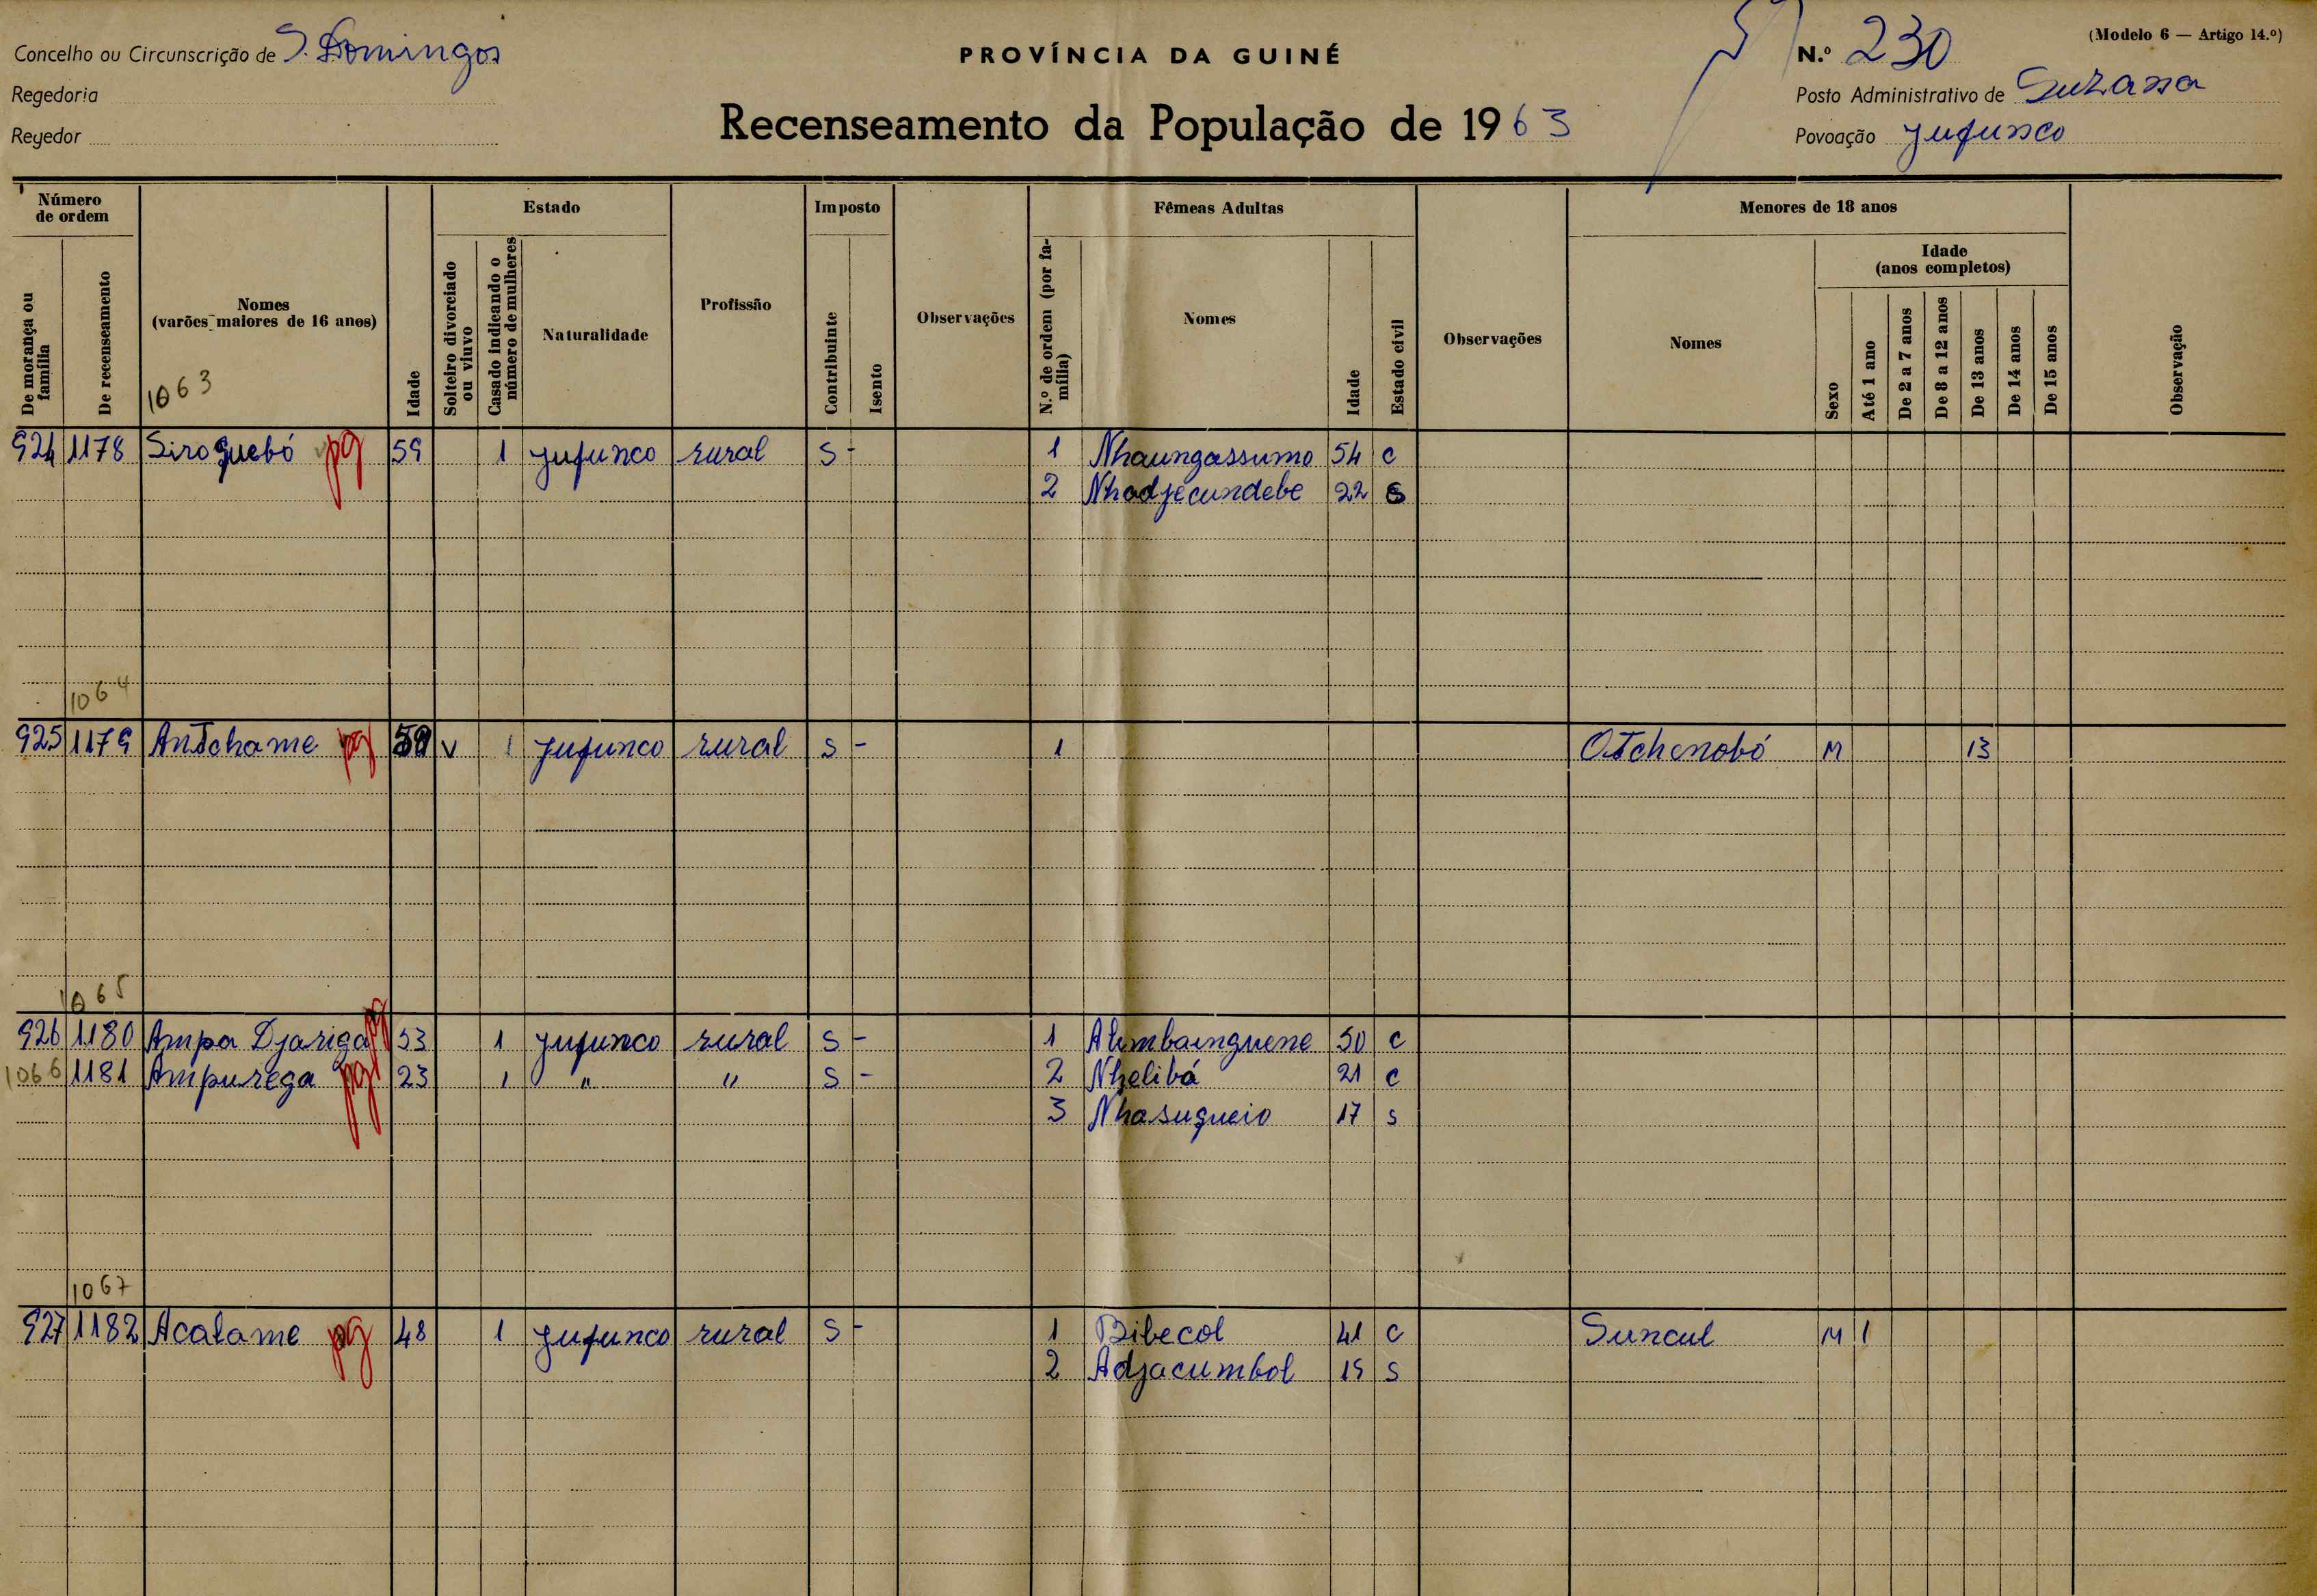 Concelho ou Circunscrição de S. Domingos
Regedoria
Regedor
PROVÍNCIA DA GUINÉ
Recenseamento da População de 1963
(Modelo 6 — Artigo 14.º)
N.º 230
Posto Administrativo de Suzana
Povoação Jufunco
Número de ordem
De morança ou família
De recenseamento
Nomes
(varões maiores de 16 anos)
1063
Idade
Estado
Solteiro divorciado ou viuvo
Casado indicando o número de mulheres
Naturalidade
Profissão
Imposto
Contribuinte
Isento
Observações
Fêmeas Adultas
N.º de ordem (por família)
Nomes
Idade
Estado civil
Observações
Menores de 18 anos
Nomes
Sexo
Idade
(anos completos)
Até 1 ano
De 2 a 7 anos
De 8 a 12 anos
De 13 anos
De 14 anos
De 15 anos
Observação
924 1178 Siroguebó pg 59 1 Jufunco rural S - 1 Nhaungassumo 54 c
2 Nhadjecundebe 22 s
1064
925 1179 Antchame pg 59 V 1 Jufunco rural S - 1 Otchenobó M 13
1065
926 1180 Ampa Djariga pg 53 1 Jufunco rural S - 1 Alimbainguene 50 c
1066 1181 Ampurega pg 23 1 " " S - 2 Nhelibá 21 c
3 Nhasugueio 17 s
1067
927 1182 Acalame pg 48 1 Jufunco rural S - 1 Bibecol 41 c Suncul M 1
2 Adjacumbol 19 s